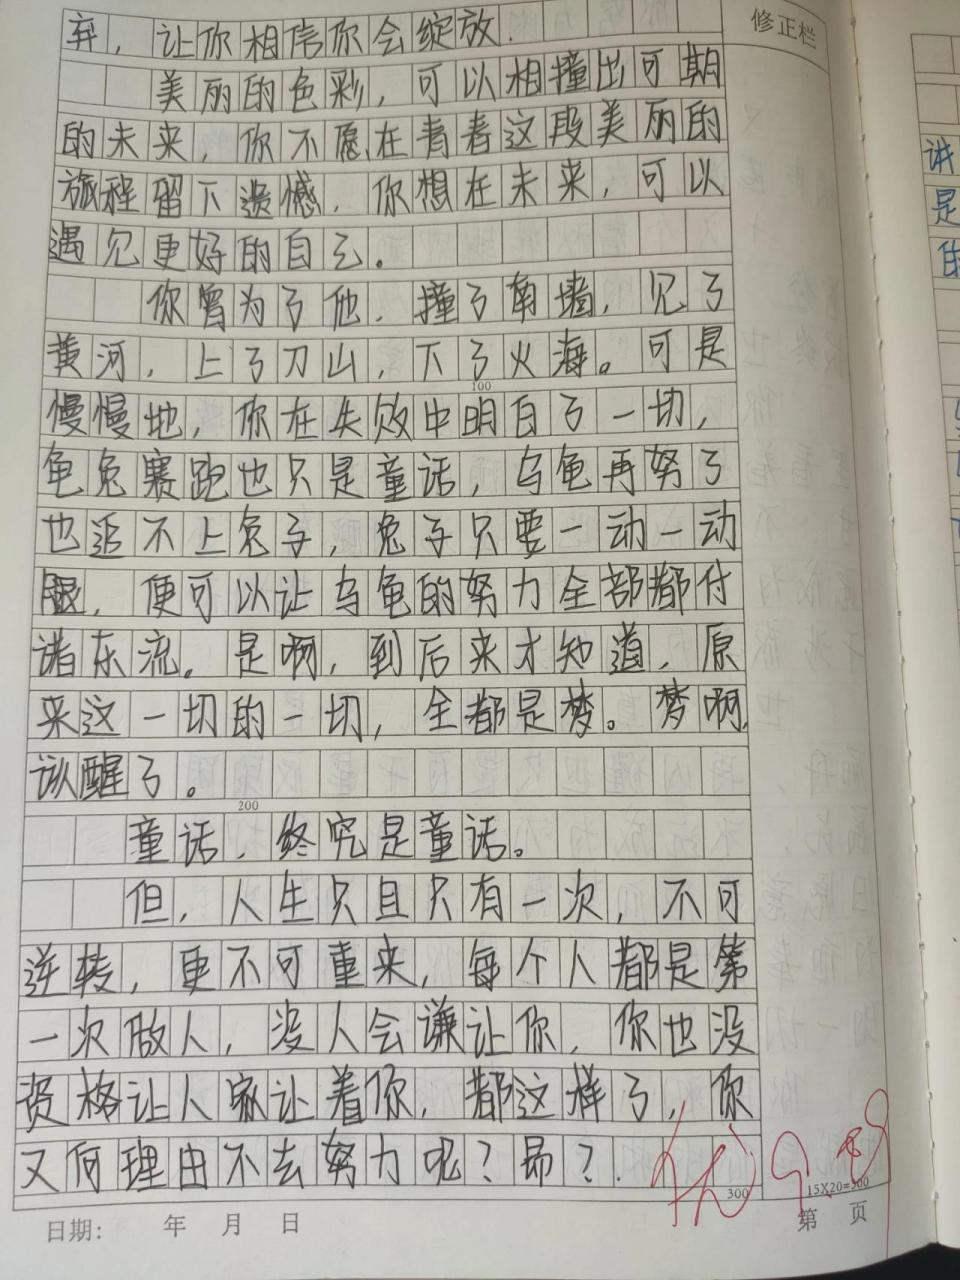 弃，让你相信你会绽放.
修正栏
美丽的色彩，可以相撞出可期
的未来，你不愿在青春这段美丽的
旅程留下遗憾，你想在未来，可以
遇见更好的自己。
你曾为了他，撞了南墙，见了
黄河，上了刀山，下了火海。可是
100
慢慢地，你在失败中明白了一切，
龟兔赛跑也只是童话，乌龟再努了
也追不上兔子，兔子只要一动一动
腿，便可以让乌龟的努力全部都付
诸东流。是啊，到后来才知道，原
来这一切的一切，全都是梦。梦啊，
该醒了。
200
童话，终究是童话。
但，人生只且只有一次，不可
逆转，更不可重来，每个人都是第
一次做人，没人会谦让你，你也没
资格让人家让着你，都这样了，你
又何理由不去努力呢？昂？.
优
300
15X20=300
日期： 年 月 日
第 页
讲
是
的